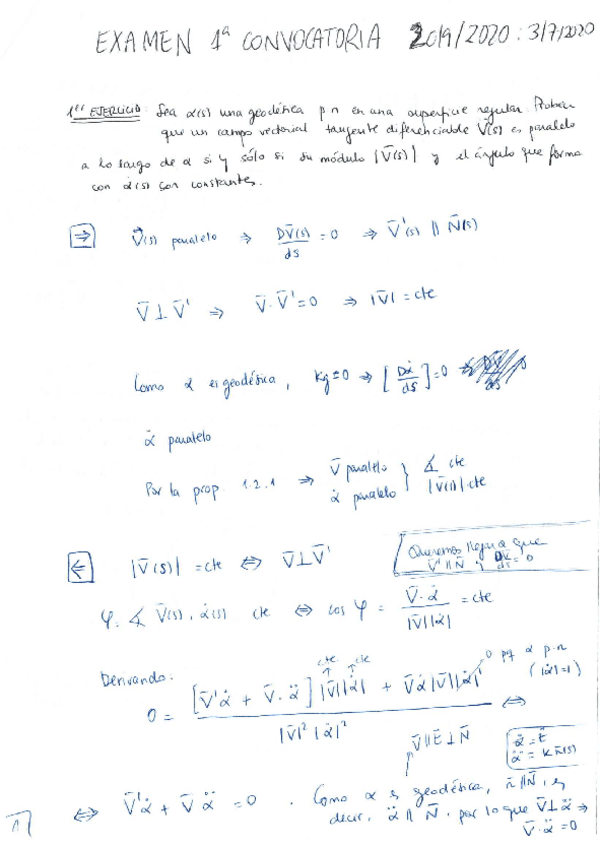 EXAMEN 1ª CONVOCATORIA 2019/2020: 3/7/2020
1er EJERCICIO: Sea α(s) una geodésica p.n en una superficie regular. Probar
que un campo vectorial tangente diferenciable V̄(s) es paralelo
a lo largo de α si y sólo si su módulo |V̄(s)| y el ángulo que forma
con α̇(s) son constantes.
⇒ V̄(s) paralelo ⇒ DV̄(s)/ds = 0 ⇒ V̄'(s) ∥ N̄(s)
V̄ ⊥ V̄' ⇒ V̄·V̄' = 0 ⇒ |V̄| = cte
Como α es geodésica, Kg = 0 ⇒ [Dα̇/ds] = 0 ⇒
α̇ paralelo
Por la prop 1.2.1 ⇒ V̄ paralelo } ∡ cte
α̇ paralelo } |V̄(s)| cte
⇐ |V̄(s)| = cte ⇔ V̄ ⊥ V̄'
Queremos llegar a que
V̄' ∥ N̄ y = 0
φ: ∡ V̄(s), α̇(s) cte ⇔ cos φ = V̄·α̇ / |V̄||α̇| = cte
Derivando: 0 = [V̄'α̇ + V̄·α̈] |V̄||α̇| + V̄α̇|V̄||α̇|' / |V̄|²|α̇|² ⇔
cte cte
0 pq α p.n
(|α̇|=1)
V̄ ∥ t̄ ⊥ N̄
α̇ = t̄
α̈ = k n̄(s)
⇔ V̄'α̇ + V̄ α̈ = 0 . Como α es geodésica, n̄ ∥ N̄, es
decir, α̈ ∥ N̄, por lo que V̄ ⊥ α̈ ⇒
V̄·α̈ = 0